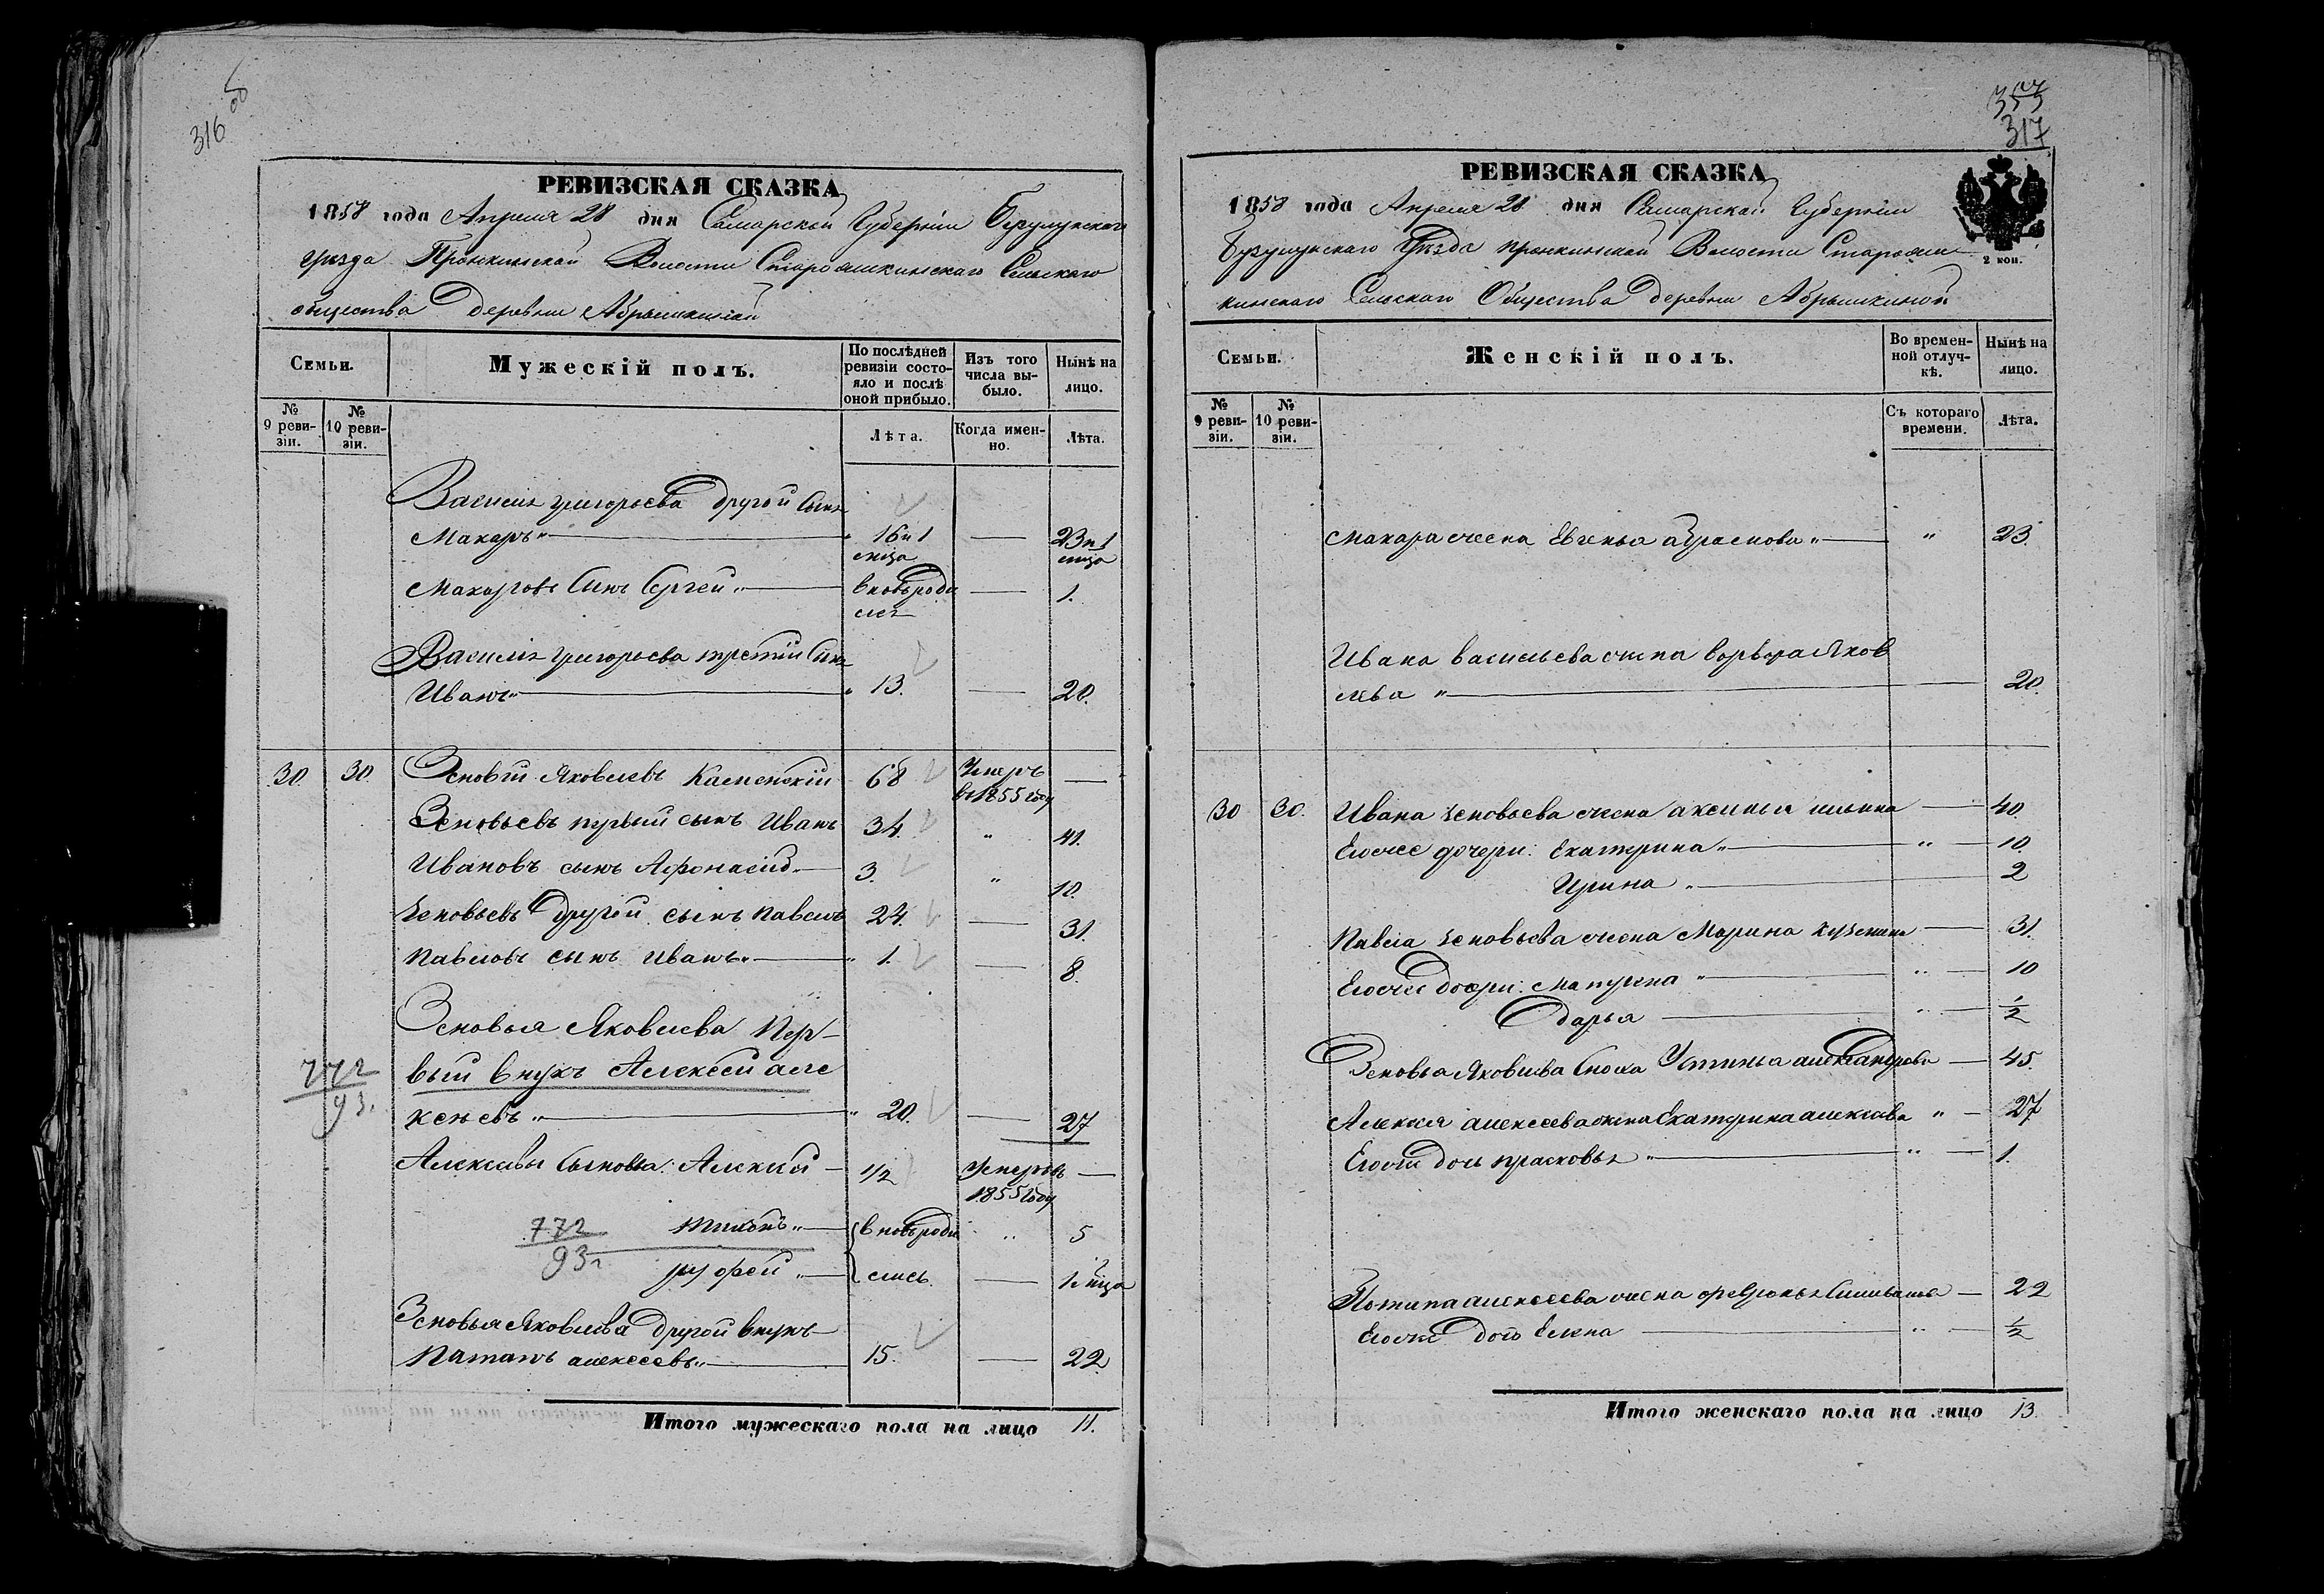 316 об
РЕВИЗСКАЯ СКАЗКА
1858 года Апреля 28 дня Самарской Губерніи Бузулукскаго
уезда Пронкинской Волости Староашкинскаго Сельскаго
общества Деревни Абрышкиной
Семьи.
Мужескій полъ.
По послѣдней ревизіи состояло и послѣ оной прибыло.
Изъ того числа выбыло.
Нынѣ на лицо.
№ 9 ревизіи.
№ 10 ревизіи.
Лѣта.
Когда именно.
Лѣта.
Василья григорьева другой Сынъ
Макаръ „ — 16 и 1 мца — 23 и 1 мца
Макаровъ Сынъ Сергей „ — вновьроди — 1.
лся
Василья Григорьева третій Сынъ
Иванъ „ — 13. — 20.
30. 30. Зеновій Яковлевъ Каменскій 68 Умеръ в 1855 году —
Зеновьевъ первый сынъ Иванъ 34. „ 41.
Ивановъ сынъ Афонасій „ — 3. „ 10.
Зеновьевъ Другой сынъ Павелъ 24. — 31.
Павловъ сынъ Иванъ „ — 1. — 8.
Зеновья Яковлева Пер-
772 вый внукъ Алексей але
93. ксеевъ „ — 20. — 27
Алексевы Сыновья: Алексей — 1/2 умеръ въ 1855 году —
772 тихонъ „ — вновьроди „ 5
93 — лись — 1 мца
Зеновья Яковлева Другой внукъ —
Патапъ алексеевъ „ — 15. — 22.
Итого мужескаго пола на лицо 11.
353
317
РЕВИЗСКАЯ СКАЗКА
1858 года Апреля 28 дня Самарской Губерніи
Бузулукскаго Уезда пронкинской Волости Староаш-
2 коп.
кинскаго Сельскаго Общества Деревни Абрышкиной
Семьи.
Женскій полъ.
Во временной отлучкѣ.
Нынѣ на лицо.
№ 9 ревизіи.
№ 10 ревизіи.
Съ котораго времени.
Лѣта.
Макара жена Евгенья — „ 23.
Ивана васильева жена Варвара Яков
лева „ — 20.
30 30. Ивана Зеновьева жена аксинья ильина — 40.
Егожее дочери: Екатерина „ — „ — 10.
Ирина „ — 2
Павла Зеновьева жена Марина Кузмина — 31.
Егоже дочери: Матрена „ — „ — 10
Дарья — „ — 1/2
Зеновья Яковлева сноха Устинья александрова — 45.
Алексея алексеева жена Екатерина алексеева „ — 27
Егоже дочь прасковья „ — „ — 1.
Потапа алексеева жена февронья Силиванова — 22
Егоже дочь Елена — „ — 1/2
Итого женскаго пола на лицо 13.